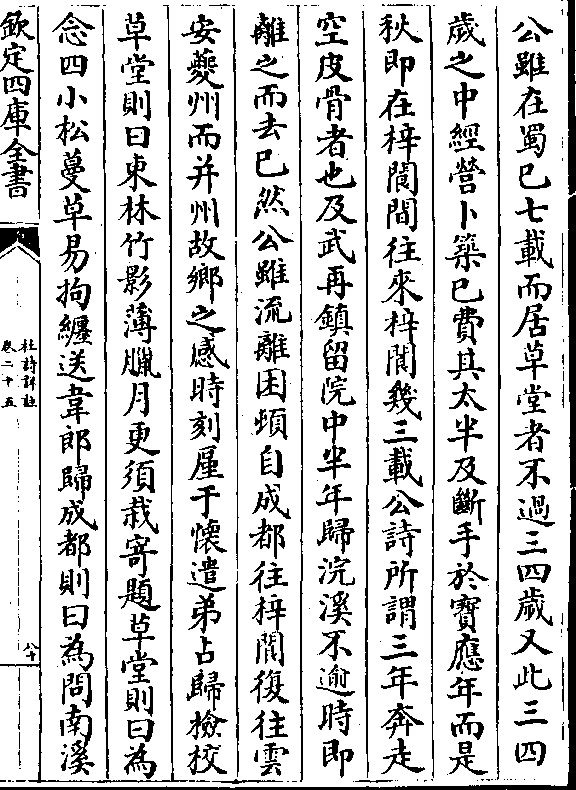 公雖在蜀已七載而居草堂者不過三四歲又此三四
歲之中經營卜築已費其太半及斷手於寶應年而是
秋即在梓閬間往來梓閬幾三載公詩所謂三年奔走
空皮骨者也及武再鎮留院中半年歸浣溪不逾時即
離之而去已然公雖流離困頓自成都往梓閬復往雲
安夔州而并州故鄉之感時刻厪于懷遣弟占歸檢校
草堂則曰東林竹影薄臘月更須栽寄題草堂則曰為
念四小松蔓草易拘纏送韋郎歸成都則曰為問南溪
欽定四庫全書
杜詩詳註
卷二十五
八十